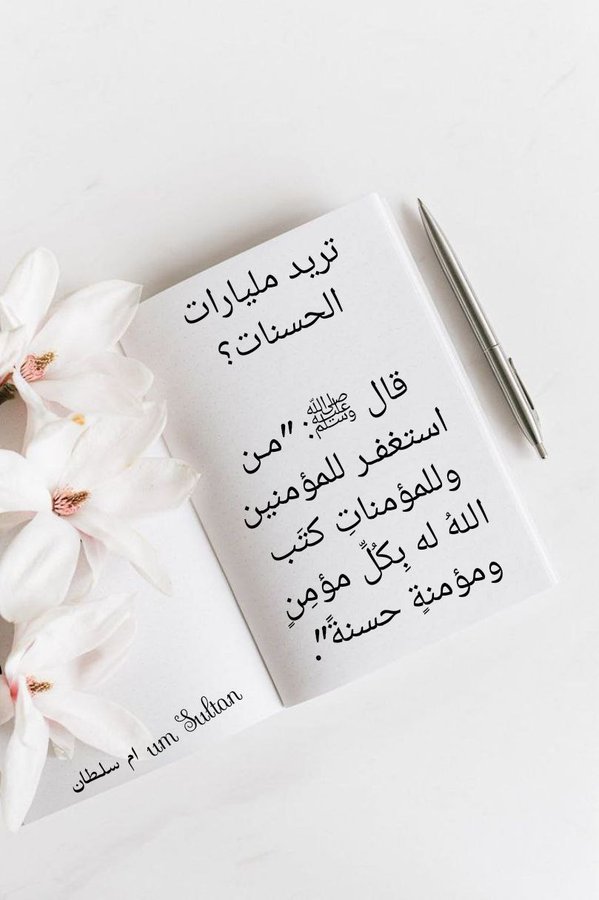 تريد مليارات
الحسنات؟
قال ﷺ: "من
استغفر للمؤمنين
وللمؤمناتِ كتَب
اللهُ له بِكُلِّ مؤمِنٍ
ومؤمنةٍ حسنةً".
ام سلطان um Sultan